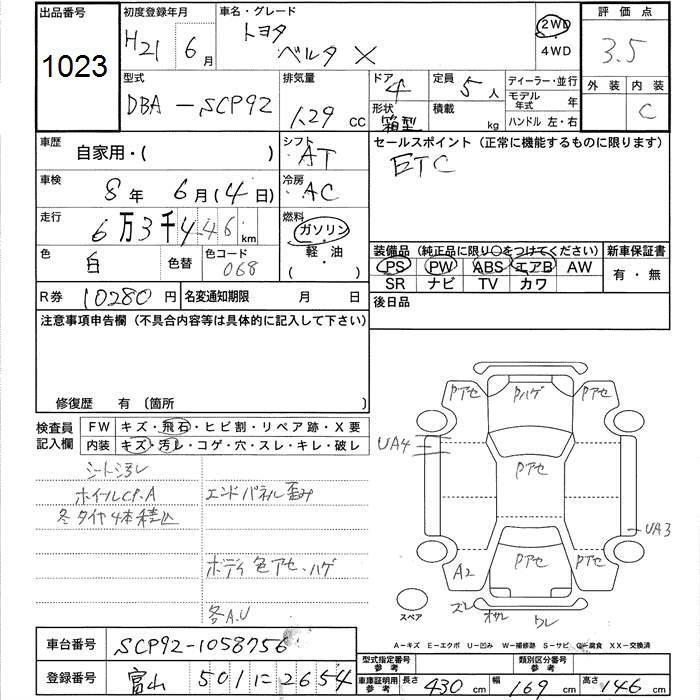 出品番号 初度登録年月 車名・グレード 評価点
1023 H21年 6月 トヨタ ベルタ X 2WD 4WD 3.5
外装 内装 C
型式 排気量 ドア 定員 ディーラー・並行
DBA-SCP92 1.29 CC 4 5人 モデル年式 年
形状 箱型 積載 kg ハンドル 左・右
車歴 シフト セールスポイント(正常に機能するものに限ります)
自家用・( ) AT ETC
車検 冷房
8年 6月(4日) AC
走行 燃料
6万3千446km ガソリン
軽・油
・( )
色 色替 色コード
白 068
装備品(純正品に限り○をつけてください) 新車保証書
PS PW ABS エアB AW 有・無
SR ナビ TV カワ
R券 10280円 名変通知期限 月 日 後日品
注意事項申告欄(不具合内容等は具体的に記入して下さい)
修復歴 有 〔箇所
検査員 FW キズ・飛石・ヒビ割・リペア跡・X要
記入欄 内装 キズ・汚レ・コゲ・穴・スレ・キレ・破レ
Pアセ Pハゲ Pアセ
UA4
Pアセ
UA3
A2 Pアセ Pアセ
スペア ズレ ワレ
ホイールCP.A エンドパネル歪み
冬タイヤ4本積込
ボディ色アセ、ハゲ
各A.U
A-キズ E-エクボ U-凹み W-補修跡 S-サビ C-腐食 XX-交換済
車台番号 SCP92-1058756
型式指定番号 参考 類別区分番号 参考
登録番号 富山 501 に 2654
車庫証明用 参考 長さ 430 cm 幅 169 cm 高さ 146 cm